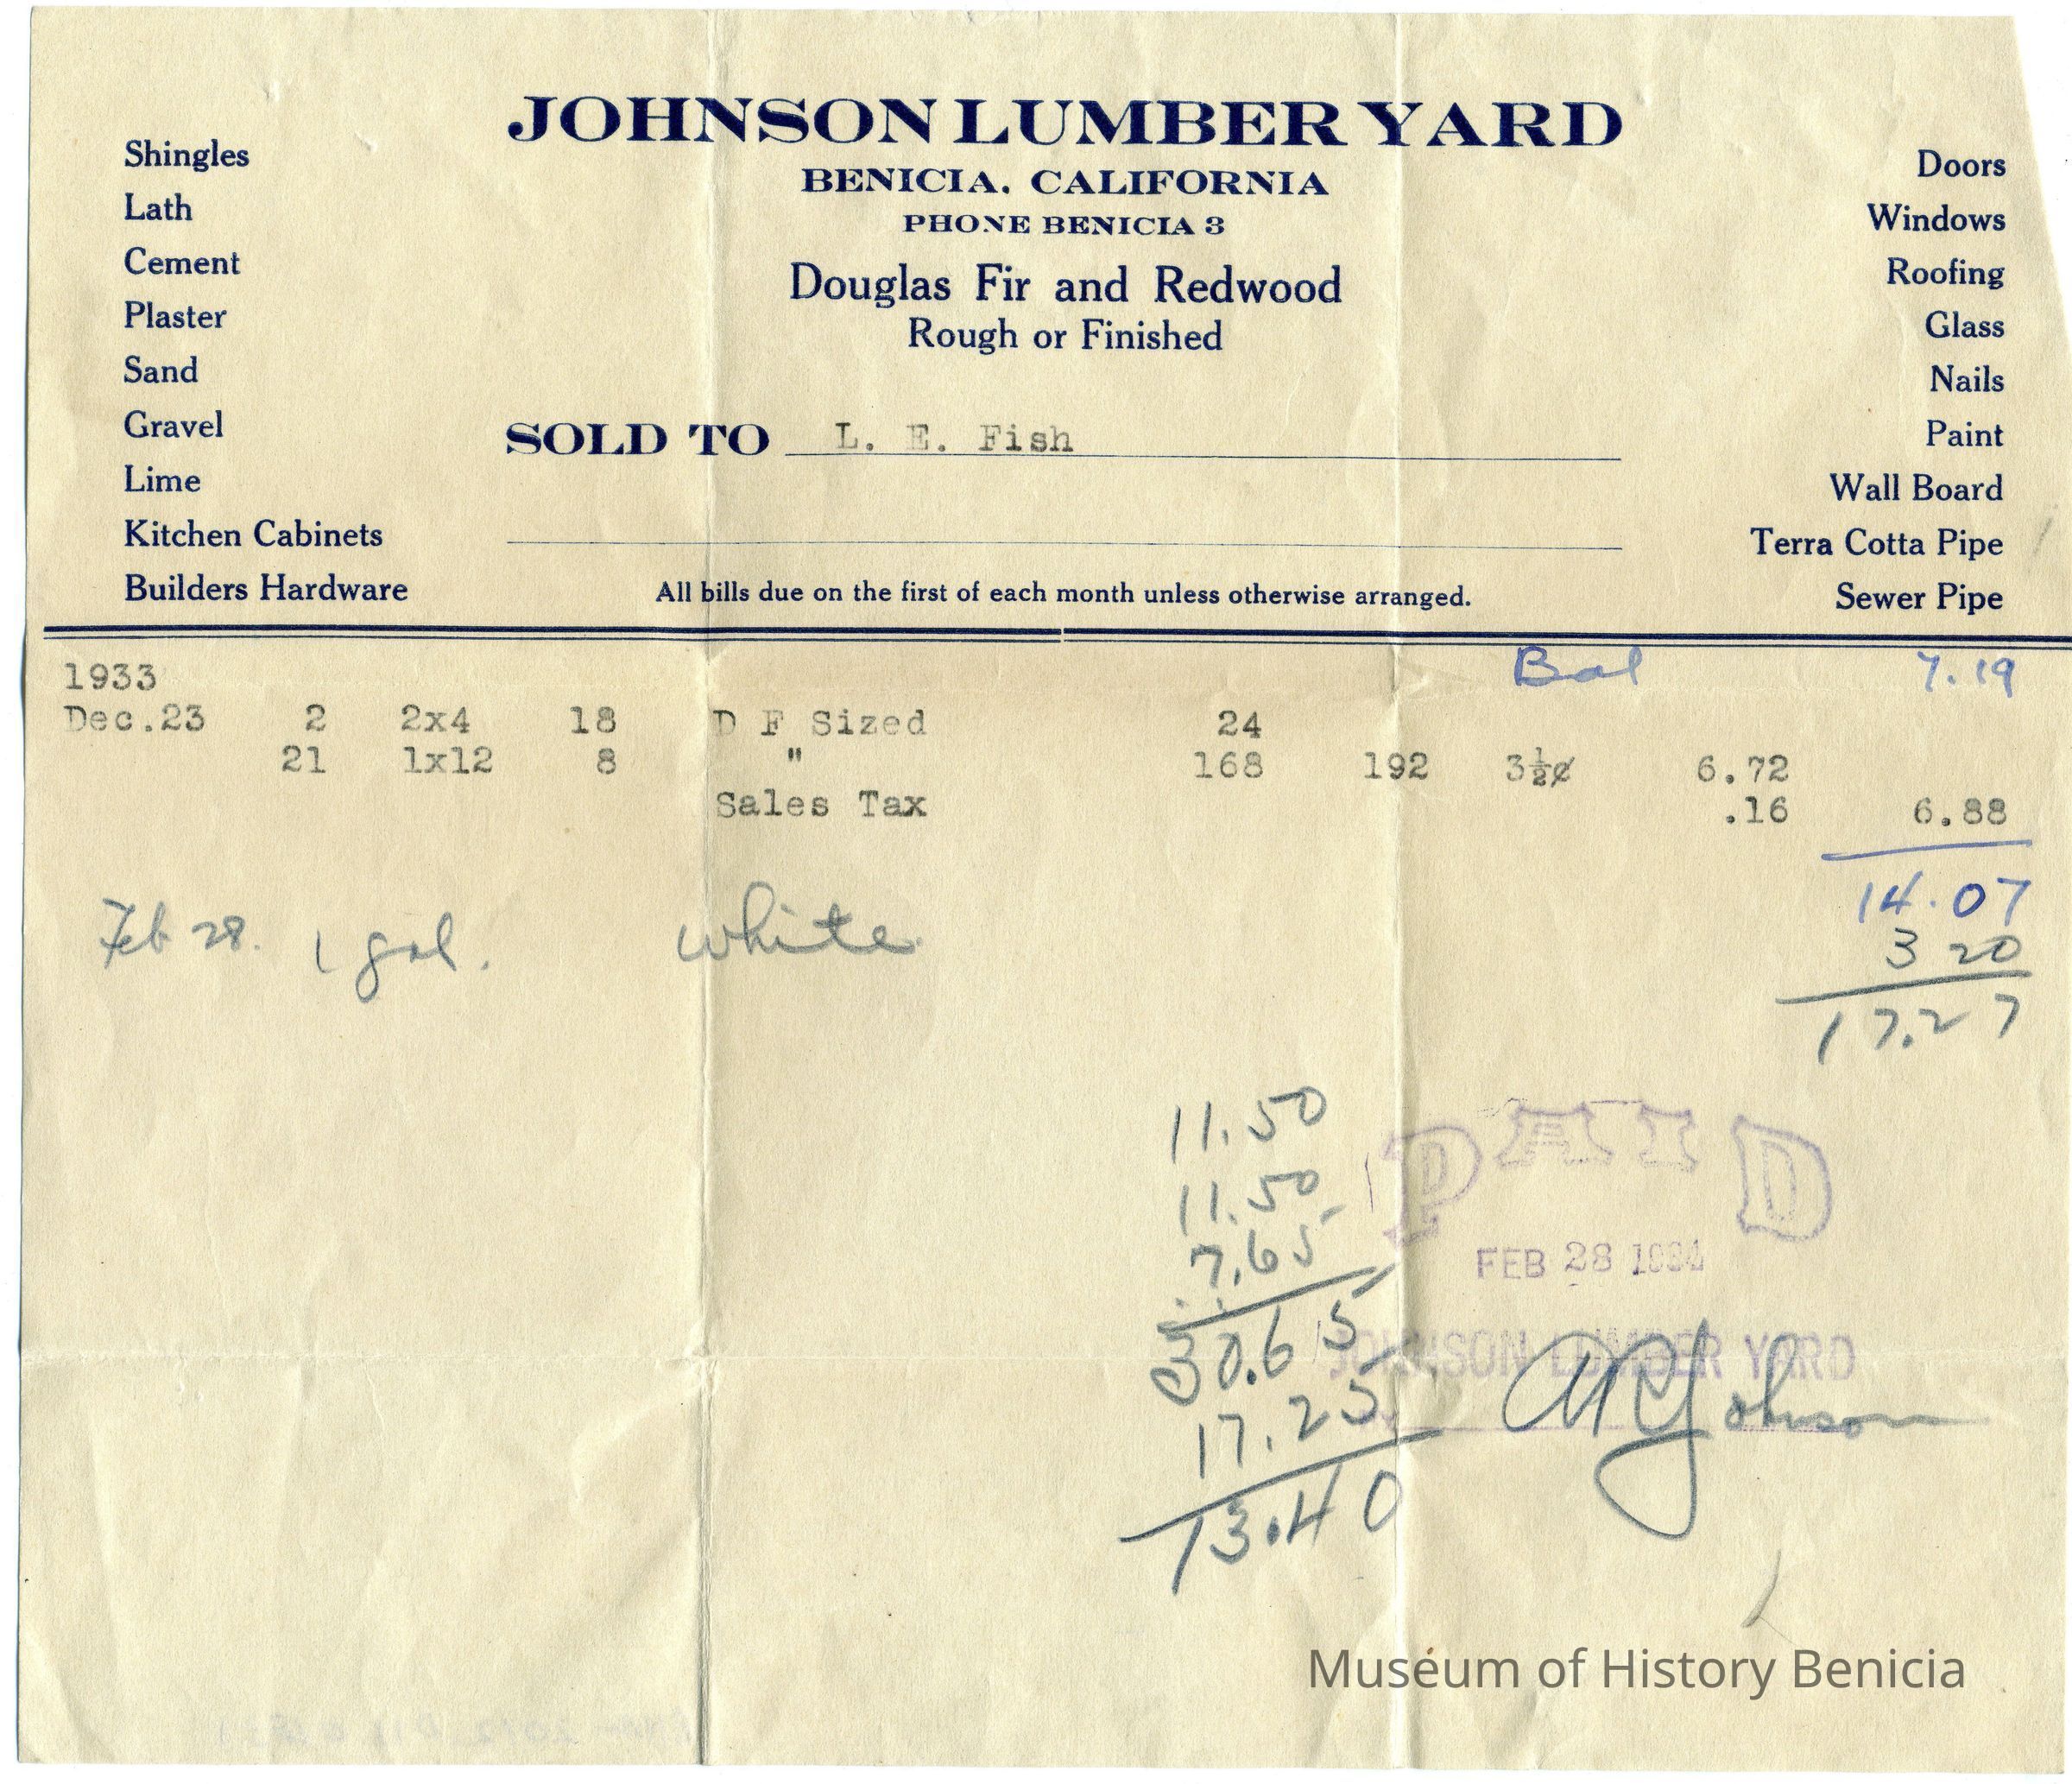 JOHNSON LUMBER YARD
BENICIA, CALIFORNIA
PHONE BENICIA 3
Douglas Fir and Redwood
Rough or Finished
Shingles
Lath
Cement
Plaster
Sand
Gravel
Lime
Kitchen Cabinets
Builders Hardware
Doors
Windows
Roofing
Glass
Nails
Paint
Wall Board
Terra Cotta Pipe
Sewer Pipe
SOLD TO L. E. Fish
All bills due on the first of each month unless otherwise arranged.
Bal 7.19
1933
Dec.23 2 2x4 18 D F Sized 24
21 1x12 8 " 168 192 3½¢ 6.72
Sales Tax .16 6.88
14.07
Feb 28. 1 gal. white 3 20
17.27
11.50
11.50
7.65
30.65
17.25
13.40
PAID
FEB 28 1934
JOHNSON LUMBER YARD
Johnson
Museum of History Benicia